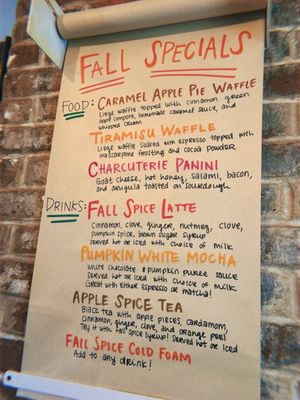 FALL SPECIALS
FOOD: CARAMEL APPLE PIE WAFFLE
Liege waffle topped with cinnamon green
apple compote, homemade caramel sauce, and
whipped cream
TIRAMISU WAFFLE
Liege waffle soaked with espresso topped with
mascarpone frosting and cocoa powder
CHARCUTERIE PANINI
Goat cheese, hot honey, salami, bacon,
and arugula toasted on sourdough
DRINKS: FALL SPICE LATTE
Cinnamon, clove, ginger, nutmeg, clove,
pumpkin spice, brown sugar syrup
Served hot or iced with choice of milk
PUMPKIN WHITE MOCHA
White chocolate & pumpkin puree sauce
Served hot or iced with choice of milk
Great with either espresso or matcha!
APPLE SPICE TEA
Black tea with apple pieces, cardamom,
cinnamon, ginger, clove, and orange peel
Try it with fall spice syrup! Served hot or iced
FALL SPICE COLD FOAM
Add to any drink!